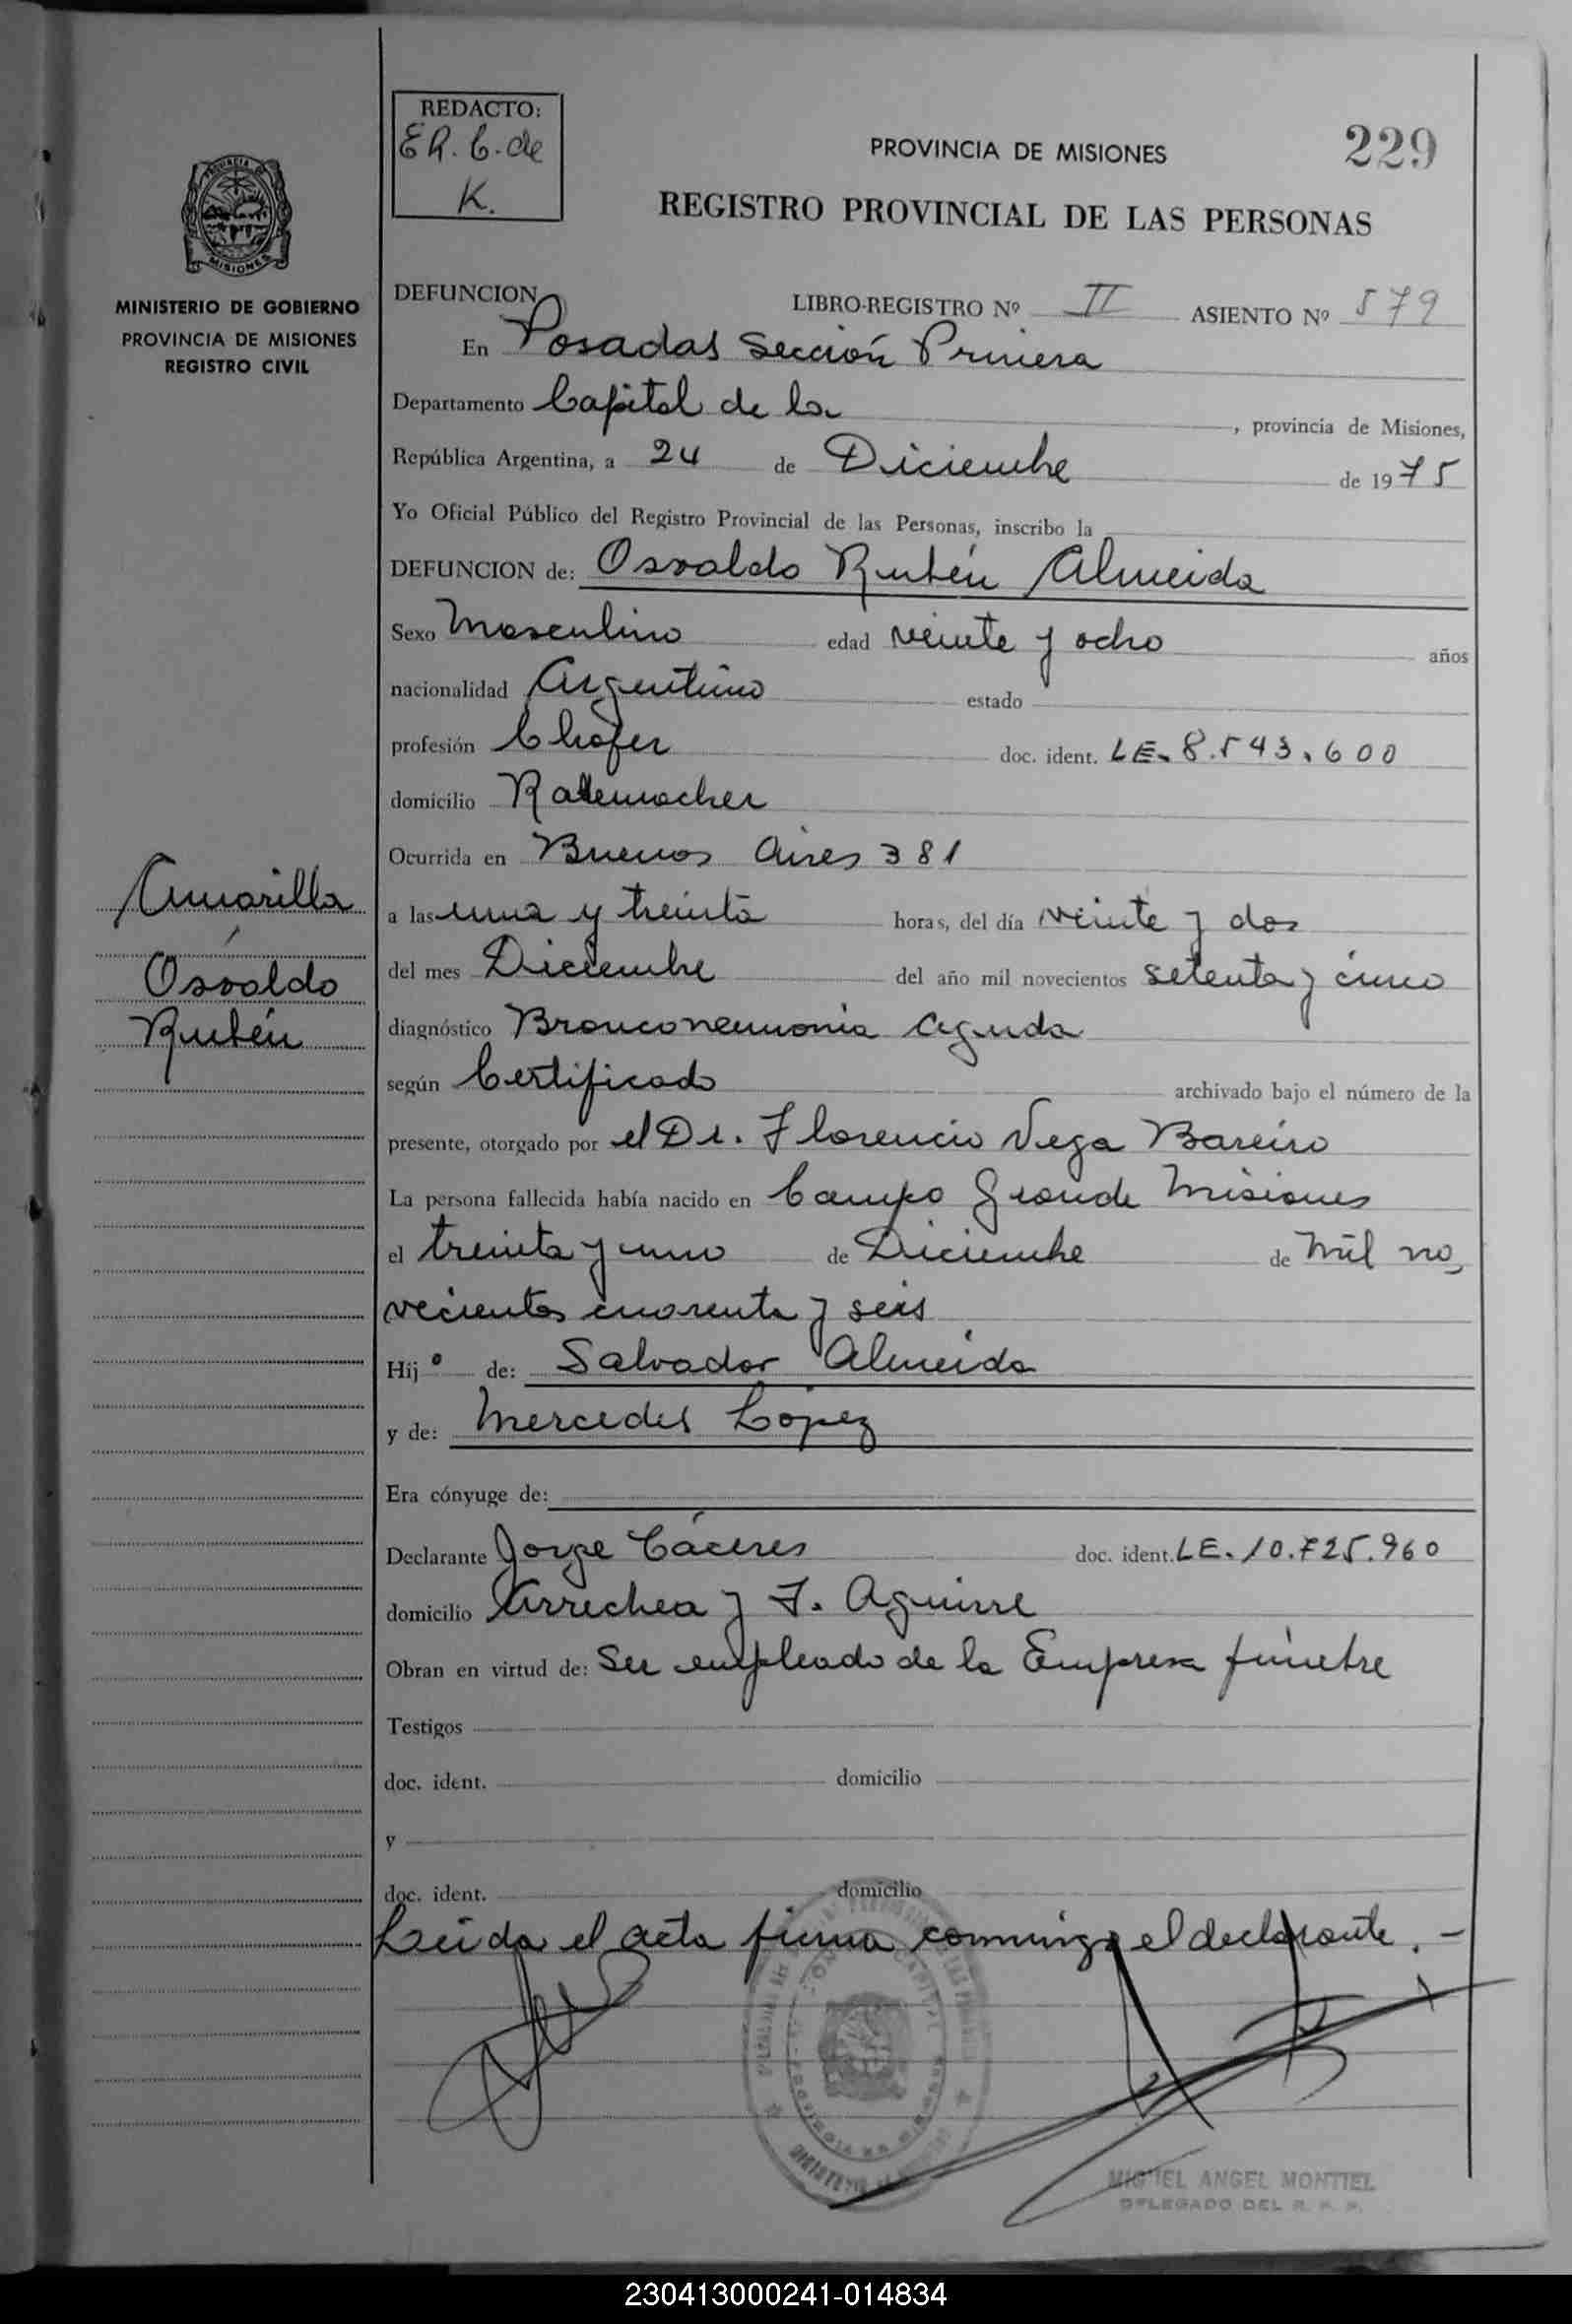 REDACTO:
E R. C. de
K.
PROVINCIA DE MISIONES
229
REGISTRO PROVINCIAL DE LAS PERSONAS
MISIONES
MINISTERIO DE GOBIERNO
PROVINCIA DE MISIONES
REGISTRO CIVIL
DEFUNCION LIBRO-REGISTRO Nº II ASIENTO Nº 579
En Posadas Sección Primera
Departamento Capital de la , provincia de Misiones,
República Argentina, a 24 de Diciembre de 1975
Yo Oficial Público del Registro Provincial de las Personas, inscribo la
DEFUNCION de: Osvaldo Rubén Almeida
Sexo Masculino edad veinte y ocho años
nacionalidad Argentino estado
profesión Chofer doc. ident. LE. 8.543.600
domicilio
Ocurrida en Buenos Aires 381
a las una y treinta horas, del día veinte y dos
del mes Diciembre del año mil novecientos setenta y cinco
diagnóstico Bronconeumonia Aguda
según Certificado archivado bajo el número de la
presente, otorgado por el Dr. Florencio Vega Bareiro
La persona fallecida había nacido en Campo Grande Misiones
el treinta y uno de Diciembre de Mil no,
vecientos cuarenta y seis
Hijo de: Salvador Almeida
y de: Mercedes López
Era cónyuge de:
Declarante Jorge Cáceres doc. ident. LE. 10.725.960
domicilio Arrechea y F. Aguirre
Obran en virtud de: Ser empleado de la Empresa fúnebre
Testigos
doc. ident. domicilio
y
doc. ident. domicilio
Leida el acta firma conmigo el declarante. -
Amarilla
Osvaldo
Rubén
MIGUEL ANGEL MONTIEL
DELEGADO DEL R. P. P.
230413000241-014834